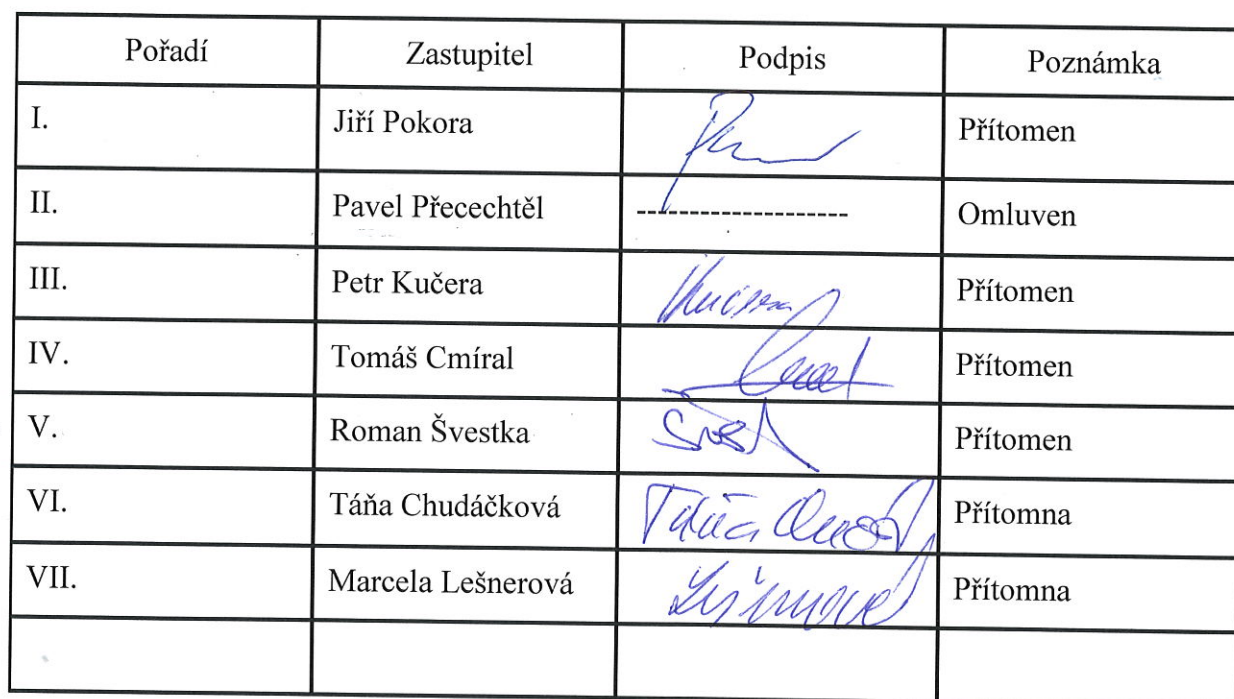 Pořadí Zastupitel Podpis Poznámka
I. Jiří Pokora Přítomen
II. Pavel Přecechtěl -------------------- Omluven
III. Petr Kučera Kučera Přítomen
IV. Tomáš Cmíral Přítomen
V. Roman Švestka Přítomen
VI. Táňa Chudáčková Táňa Přítomna
VII. Marcela Lešnerová Přítomna